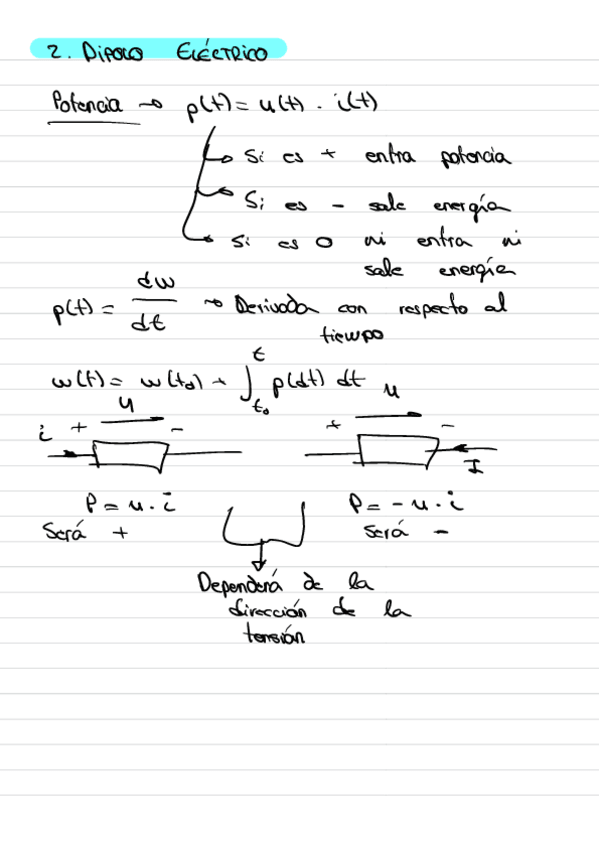 2. DIPOLO ELÉCTRICO
Potencia → p(t) = u(t) · i(t)
Si es + entra potencia
Si es - sale energía
Si es 0 ni entra ni
sale energía
p(t) = dw/dt → Derivada con respecto al
tiempo
w(t) = w(t₀) + ∫ₜ₀ᵗ p(dt) dt
u
u
i + -
+ -
I
P = u · i
P = - u · i
Será +
Será -
Dependerá de la
dirección de la
tensión